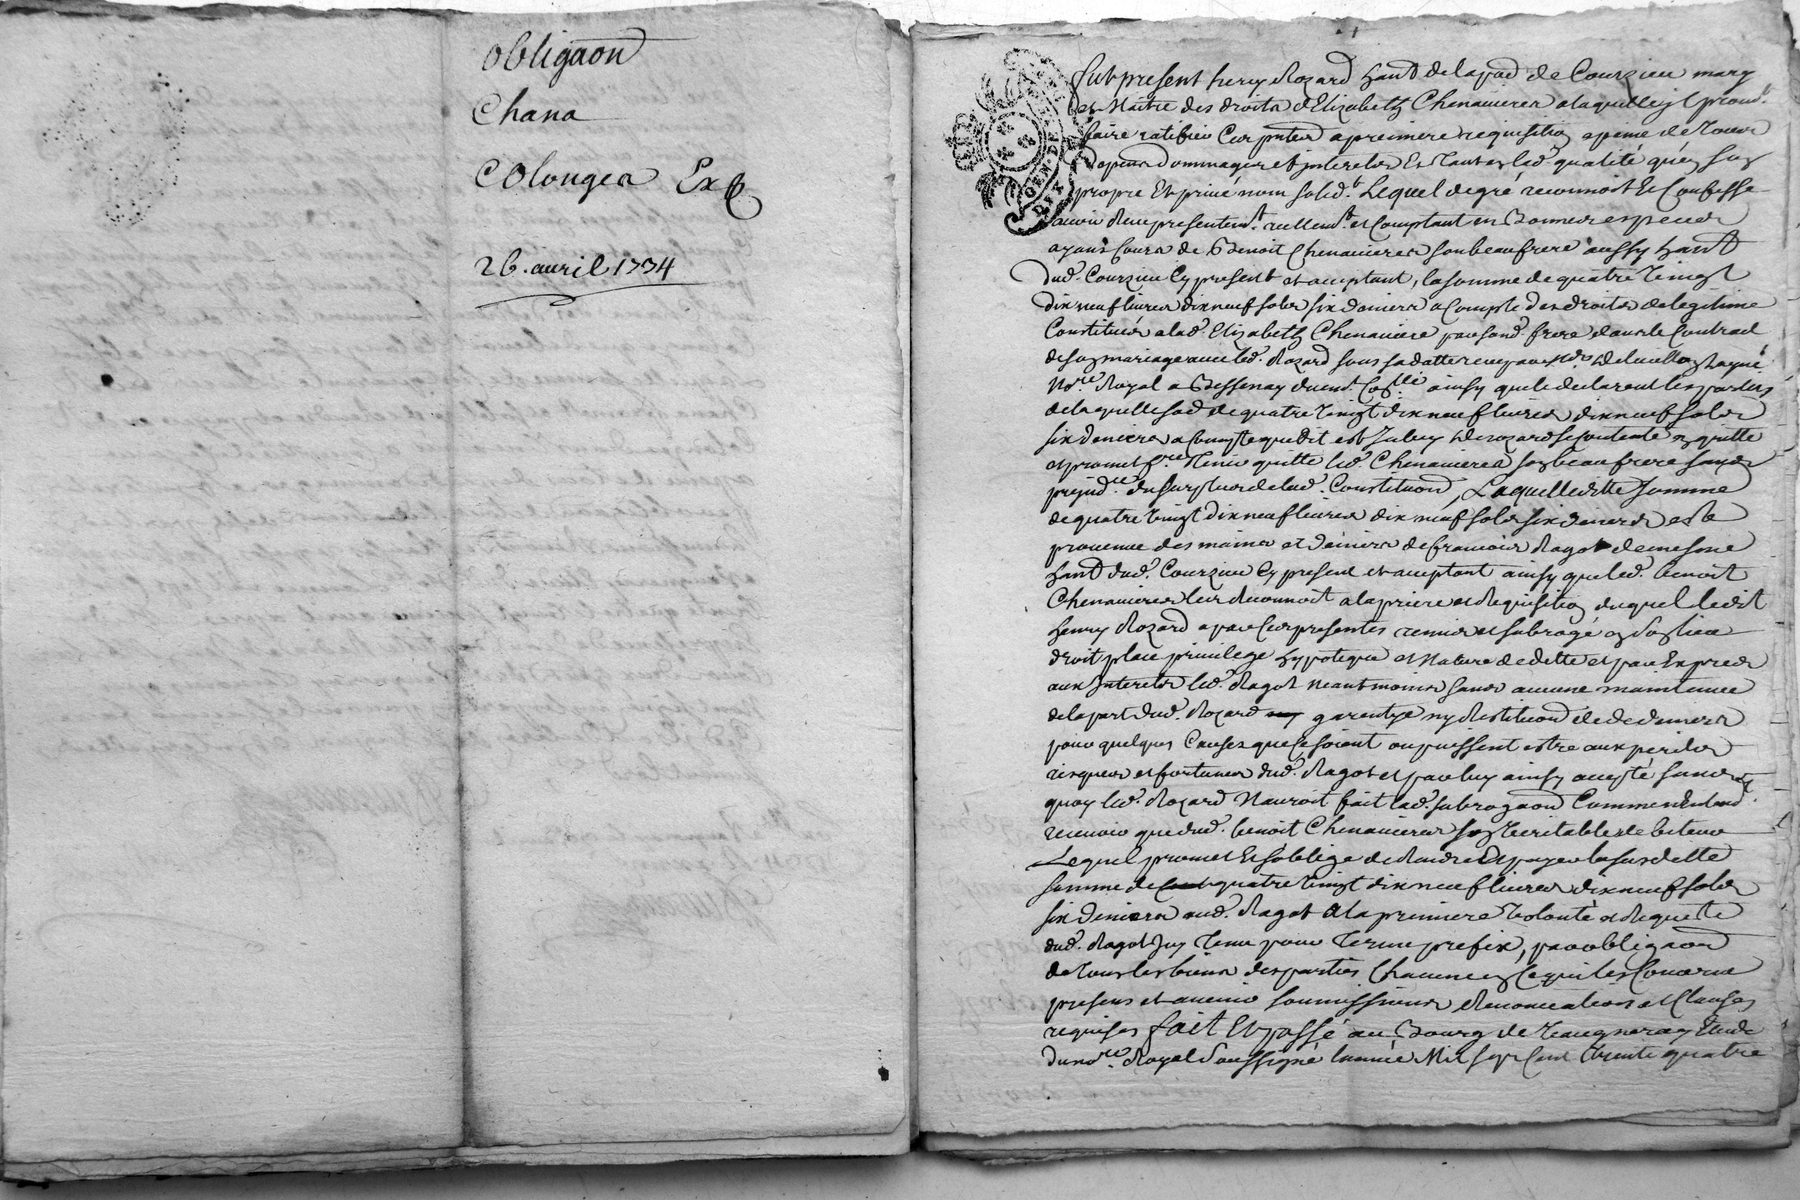 obligaon
Chana
Colonges Exp
26. auril 1734
GEN. DE
fut present henry Rozard hant de la p de Courzieu mary
et Maitre des droits d'Elizabeth Chenauieres a laquelle il
faire ratifier Ces a premiere requisition a peine de tous
depens dommages et interets Et tant en lad. qualité qu'en son
propre Et priué nom solid. Lequel de gré reconnoit Et Confesse
auoir receu presentem.t reellem.t et Comptant en Bonnes especes
ayant Cours de Benoit Chenauieres son beaufrere aussy hant
dud. Courzieu Cy present et acceptant, la somme de quatre Vingt
dix neuf liures dix neuf sols six deniers a Compte des droits de legitime
Constitués a lad. Elizabeth Chenauiere par sond. frere dans le Contract
de son mariage auec led. Rozard sous sa datte receu par
No.re Royal a Bessenay ainsy que le declarent les parties
de laquelle de quatre Vingt dix neuf liures dix neuf sols
six deniers a Compte que dit est Rozard se Contente en quitte
et promet tenir quitte led. Chenauieres son beaufrere sans
prejud.ce du surplus de lad. Constituon, Laquelle ditte somme
de quatre Vingt dix neuf liures dix neuf sols six deniers est
prouenue des mains et deniers de francois Ragot
hant dud. Courzieu Cy present et acceptant ainsy que led. benoit
Chenauieres le reconnoit a la priere et Requisition duquel ledit
henry Rozard a par Ces presentes remis et subrogé en son lieu
droit place priuilege hypoteque et Nature de dette et par Exprés
aux Interets led. Ragot neantmoins sans aucune maintenue
de la part dud. Rozard garentye ny Restituon de deniers
pour quelques Causes que ce soient ou puissent estre aux perils
risques et fortunes dud. Ragot et par luy ainsy accepté sans
quoy led. Rozard N'auroit fait lad. subrogaon
que dud. benoit Chenauieres son Veritable debiteur
Lequel promet Et s'oblige de Rendre Et payer la susditte
somme de quatre Vingt dix neuf liures dix neuf sols
six deniers aud. Ragot a la premiere Volonté et Requete
dud. Ragot pour Terme prefix, par obligaon
de tous les biens des parties Chacune en Ce qui les Concerne
presens et auenir soumissions Renonciations et Clauses
requises fait Et passé au Bourg de Vaugneray Etude
du no.re Royal Soussigné l'année Mil sept Cent trente quatre